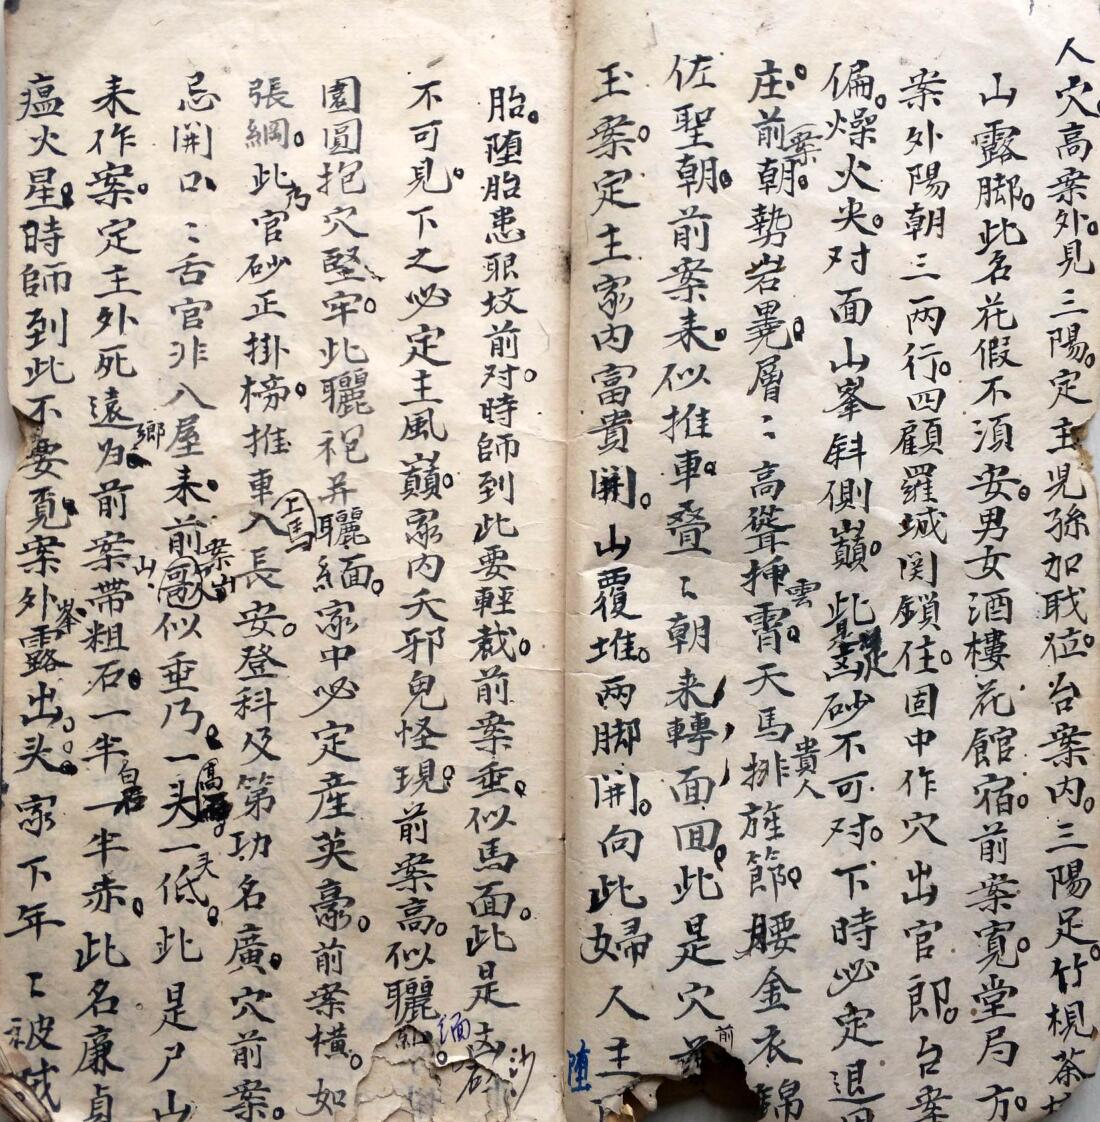 人穴高案外。見三陽。定主児孫加職位。台案内。三陽足。竹梘茶
山露脚。此名花假不須安。男女酒樓花館宿。前案寬。堂局方。
案外陽朝三兩行。四顧羅城関鎖住。固中作穴出官郎。台案
偏。燥火尖。对面山峯斜側巔。此是砂不可对。下時必定退
庄。前朝。案勢岩㟪。層〻高聳挿雲霄。天馬貴人排旌節。腰金衣錦
佐聖朝。前案来。似推車。叠〻朝来轉面囬。此是穴前
玉案。定主家内富貴開。山覆堆。兩脚開。向此婦人主
堕
胎。堕胎患眼坟前对。時師到此要輕裁。前案垂。似馬面。此是
沙
不可見。下之必定主風巔。家内夭邪皃怪現。前案高。似㘑
緬
園圓抱穴堅牢。此㘑祀并㘑緬。家中必定産英豪。前案橫。如
張綱。此乃官砂正掛榜。推車上馬入長安。登科及第功名廣。穴前案。
忌開口。口〻舌官非入屋来。前案山似垂乃。一头高一头低。此是尸山
来作案。定主外死遠归鄉。前案山帶粗石。一半白石一半赤。此名廉貞
瘟火星。時師到此不要覓。案外峯露出头。家下年〻被